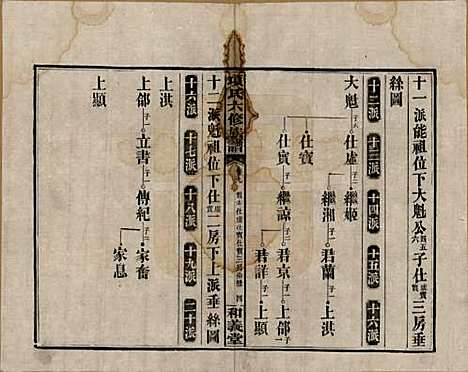 十一派能祖位下大魁公四五六子仕虛賓實三房垂
絲圖
十二派 十三派 十四派 十五派 十六派
大魁 子六
仕虛 子二 繼姬
繼湘 子一 君蘭 子一 上洪
仕賓
仕實 子一 繼諒 子二 君京 子一 上郤 子一
君詳 子一 上顯
項氏六修族譜
四
和義堂
十二派魁祖位下仕虛實二房下上派垂絲圖
十六派 十七派 十八派 十九派 二十派
上洪
上郤 子一 立書 子一 傳紀 子二 家奮
家息
上顯